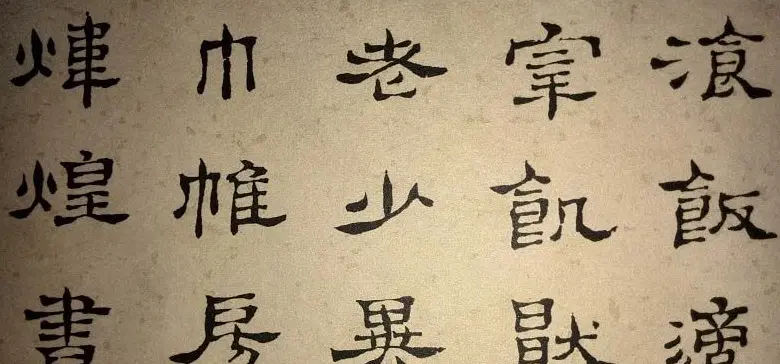 湌飯適
宰飢猒
老少異
巾帷房
煒煌晝